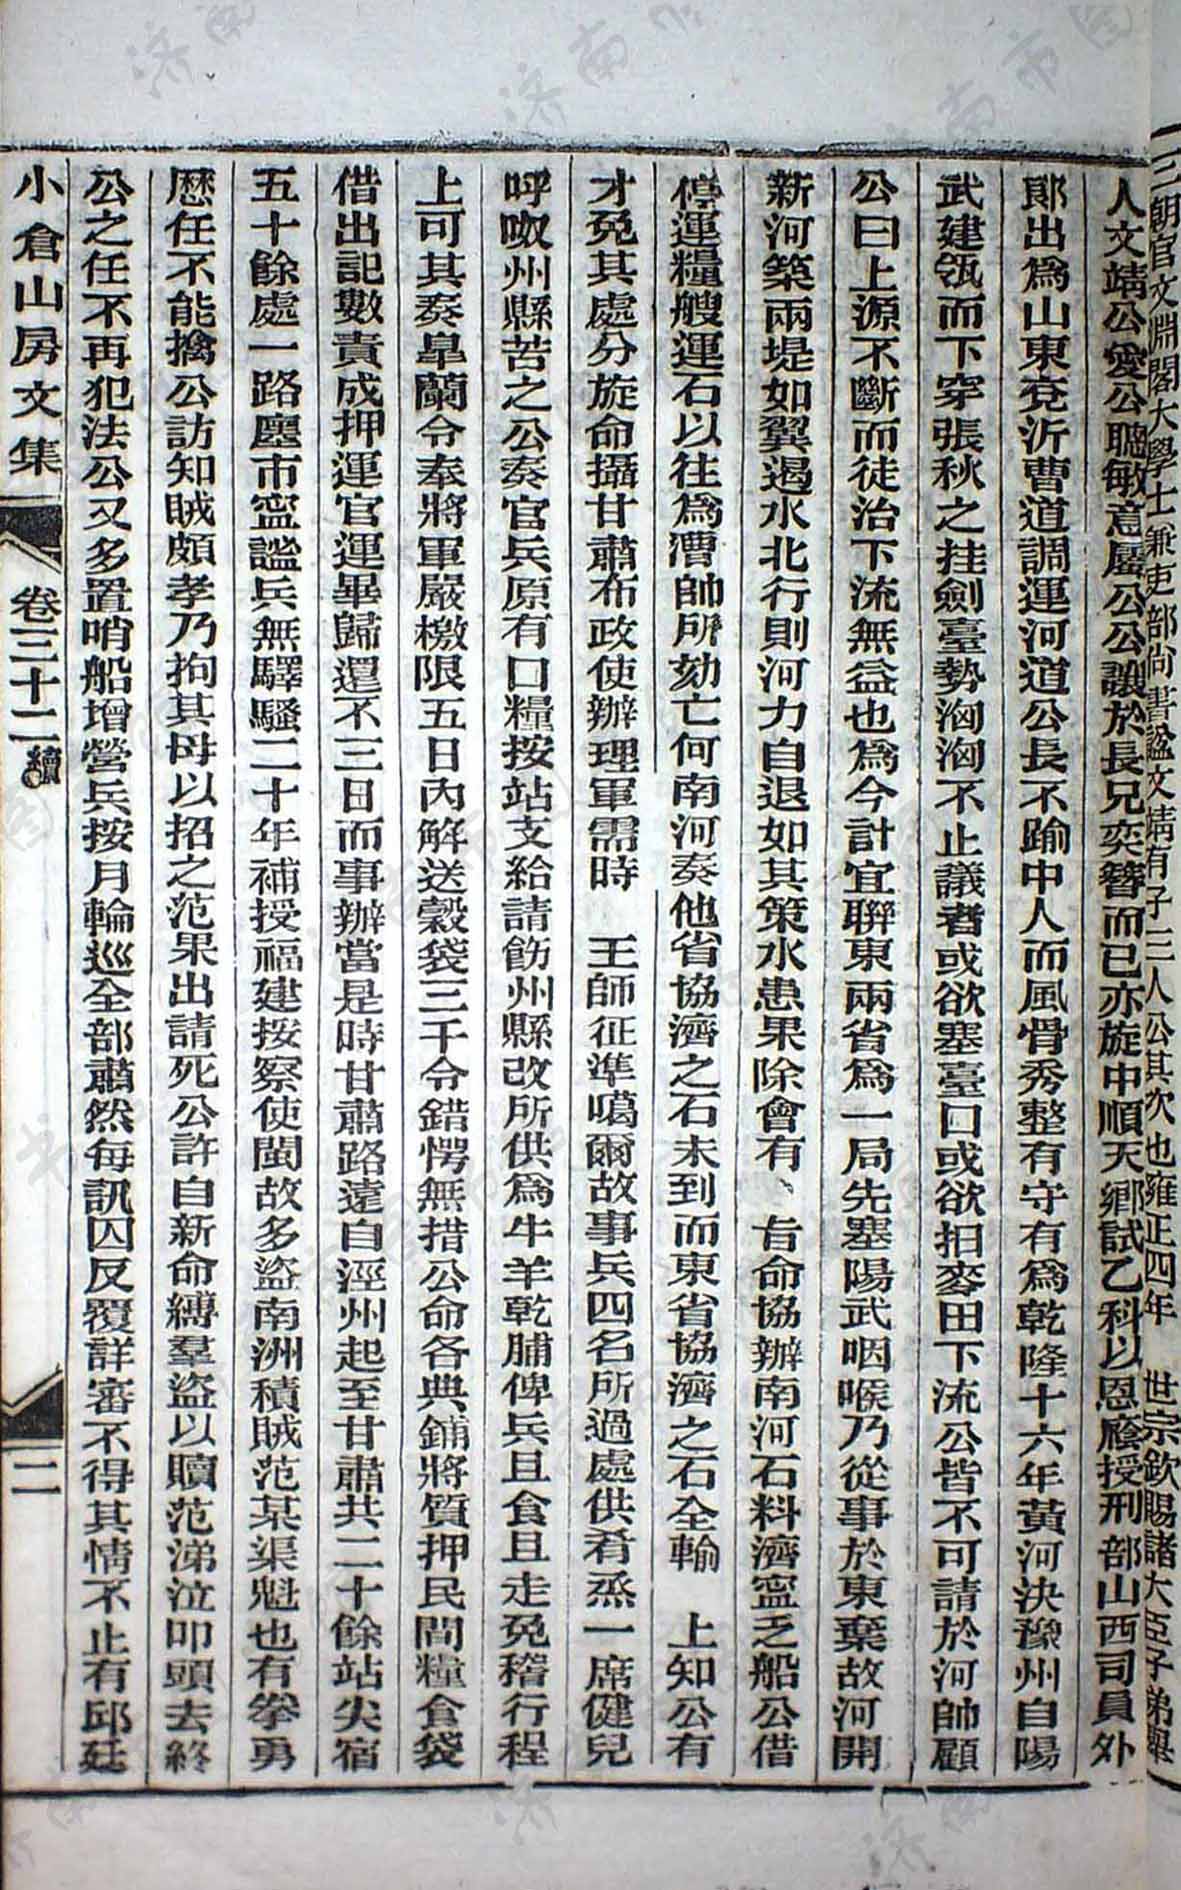 三朝官文淵閣大學士兼吏部尚書諡文靖有子三人公其次也雍正四年　世宗欽賜諸大臣子弟舉
人文靖公愛公聰敏意屬公公讓於長兄奕簪而已亦旋中順天鄉試乙科以恩廕授刑部山西司員外
郞出爲山東兗沂曹道調運河道公長不踰中人而風骨秀整有守有爲乾隆十六年黃河決豫州自陽
武建瓴而下穿張秋之挂劍臺勢洶洶不止議者或欲塞臺口或欲掘麥田下流公皆不可請於河帥顧
公曰上源不斷而徒治下流無益也爲今計宜聯東兩省爲一局先塞陽武咽喉乃從事於東棄故河開
新河築兩堤如翼遏水北行則河力自退如其策水患果除會有　旨命協辦南河石料濟寧乏船公借
停運糧艘運石以往爲漕帥所劾亡何南河奏他省協濟之石未到而東省協濟之石全輸　上知公有
才免其處分旋命攝甘肅布政使辦理軍需時　王師征準噶爾故事兵四名所過處供肴烝一席健兒
呼呶州縣苦之公奏官兵原有口糧按站支給請飭州縣改所供爲牛羊乾脯俾兵且食且走免稽行程
上可其奏皐蘭令奉將軍嚴檄限五日內解送穀袋三千令錯愕無措公命各典鋪將質押民間糧食袋
借出記數責成押運官運畢歸還不三日而事辦當是時甘肅路遠自涇州起至甘肅共二十餘站尖宿
五十餘處一路廛市寧謐兵無驛騷二十年補授福建按察使閩故多盜南洲積賊范某渠魁也有拳勇
歷任不能擒公訪知賊頗孝乃拘其母以招之范果出請死公許自新命縛羣盜以贖范涕泣叩頭去終
公之任不再犯法公又多置哨船增營兵按月輪巡全部肅然每訊囚反覆詳審不得其情不止有邱廷
小倉山房文集　卷三十二續　二
济南市图书馆